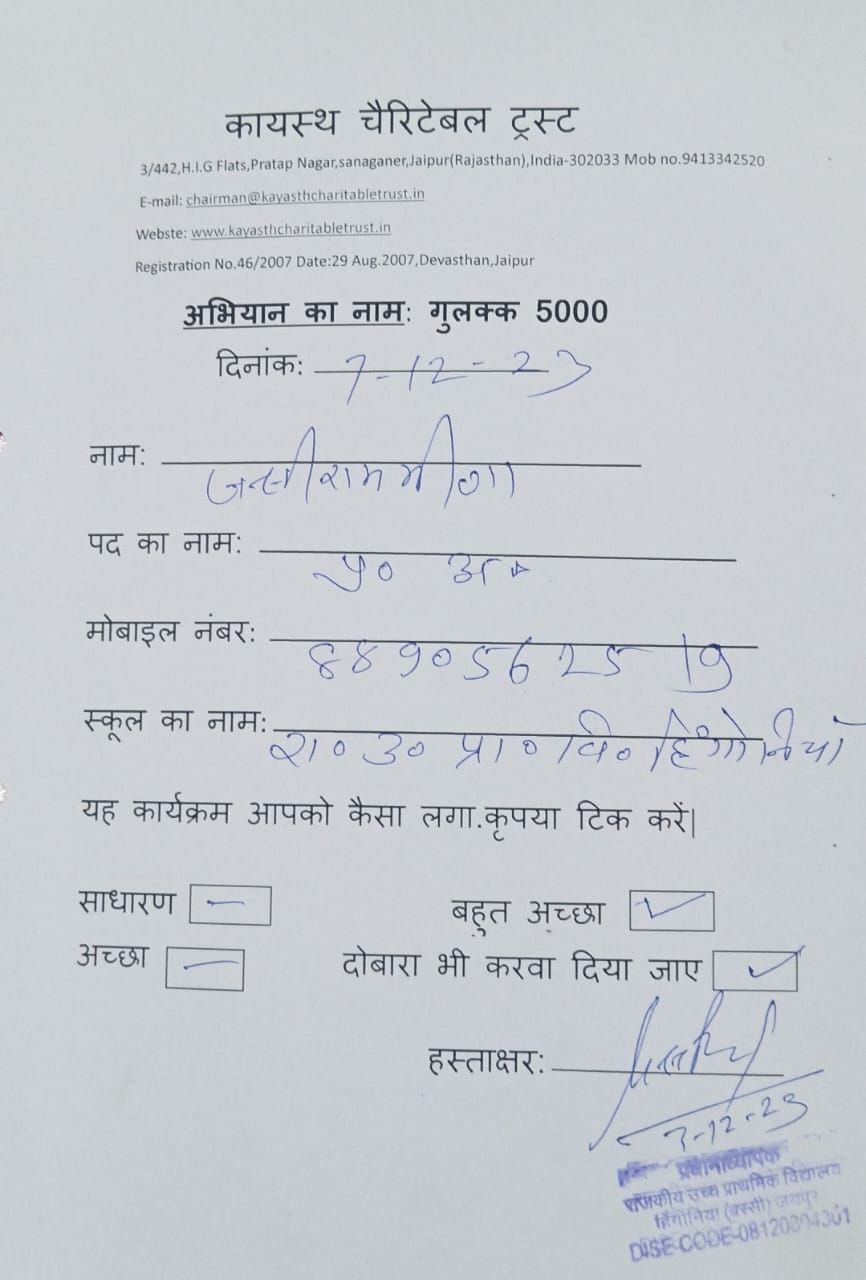 कायस्थ चैरिटेबल ट्रस्ट
3/442,H.I.G Flats,Pratap Nagar,sanaganer,Jaipur(Rajasthan),India-302033 Mob no.9413342520
E-mail: chairman@kayasthcharitabletrust.in
Webste: www.kayasthcharitabletrust.in
Registration No.46/2007 Date:29 Aug.2007,Devasthan,Jaipur
अभियान का नाम: गुलक्क 5000
दिनांक: 7-12-23
नाम: जन्सीराम मीणा
पद का नाम: प्र० अ०
मोबाइल नंबर: 8890562519
स्कूल का नाम: रा० उ० प्रा० वि० हिंगोनियाँ
यह कार्यक्रम आपको कैसा लगा.कृपया टिक करें|
साधारण — बहुत अच्छा ✓
अच्छा — दोबारा भी करवा दिया जाए ✓
हस्ताक्षर:
7-12-23
प्रधानाध्यापक
राजकीय उच्च प्राथमिक विद्यालय
हिंगोनिया (बस्सी) जयपुर
DISE-CODE-08120804301